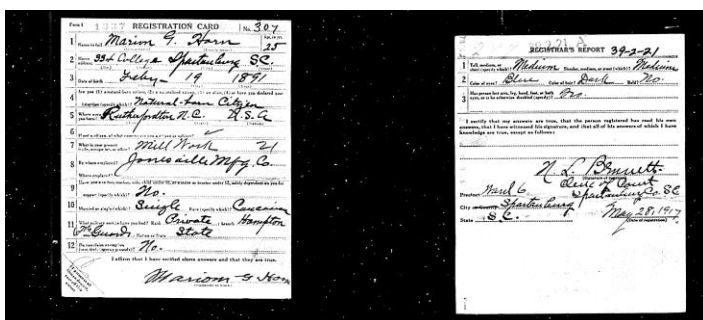 Form 1 1337 REGISTRATION CARD No. 307
1 Name in full Marion G. Horn Age, in yrs. 25
2 Home address 354 College Spartanburg S.C.
3 Date of birth Feby - 19 1891
4 Are you (1) a natural-born citizen, (2) a naturalized citizen, (3) an alien, (4) or have you declared your
intention (specify which)? Natural-born Citizen
5 Where were you born? Rutherfordton N.C. U.S.A
6 If not a citizen, of what country are you a citizen or subject?
7 What is your present trade, occupation, or office? Mill Work 21
8 By whom employed? Jonesville Mfg. Co.
Where employed?
9 support (specify which)? No.
10 Married or single (which)? Single Race (specify which)? Caucasian
11 What military service have you had? Rank Private; branch Hampton
Guards; Nation or State State
12 Do you claim exemption from draft (specify grounds)? No.
I affirm that I have verified above answers and that they are true.
Marion G Horn
REGISTRAR'S REPORT 39-2-21
1 Tall, medium, or short (specify which)? Medium Slender, medium, or stout (which)? Medium
2 Color of eyes? Blue Color of hair? Dark Bald? No.
3 Has person lost arm, leg, hand, foot, or both eyes, or is he otherwise disabled (specify)? No.
I certify that my answers are true, that the person registered has read his own
answers, that I have witnessed his signature, and that all of his answers of which I have
knowledge are true, except as follows:
N. L. Bennett
Clerk of Court
Precinct Ward 6. Spartanburg Co. S.C
City or County Spartanburg May 28, 1917
State S.C. (Date of registration)